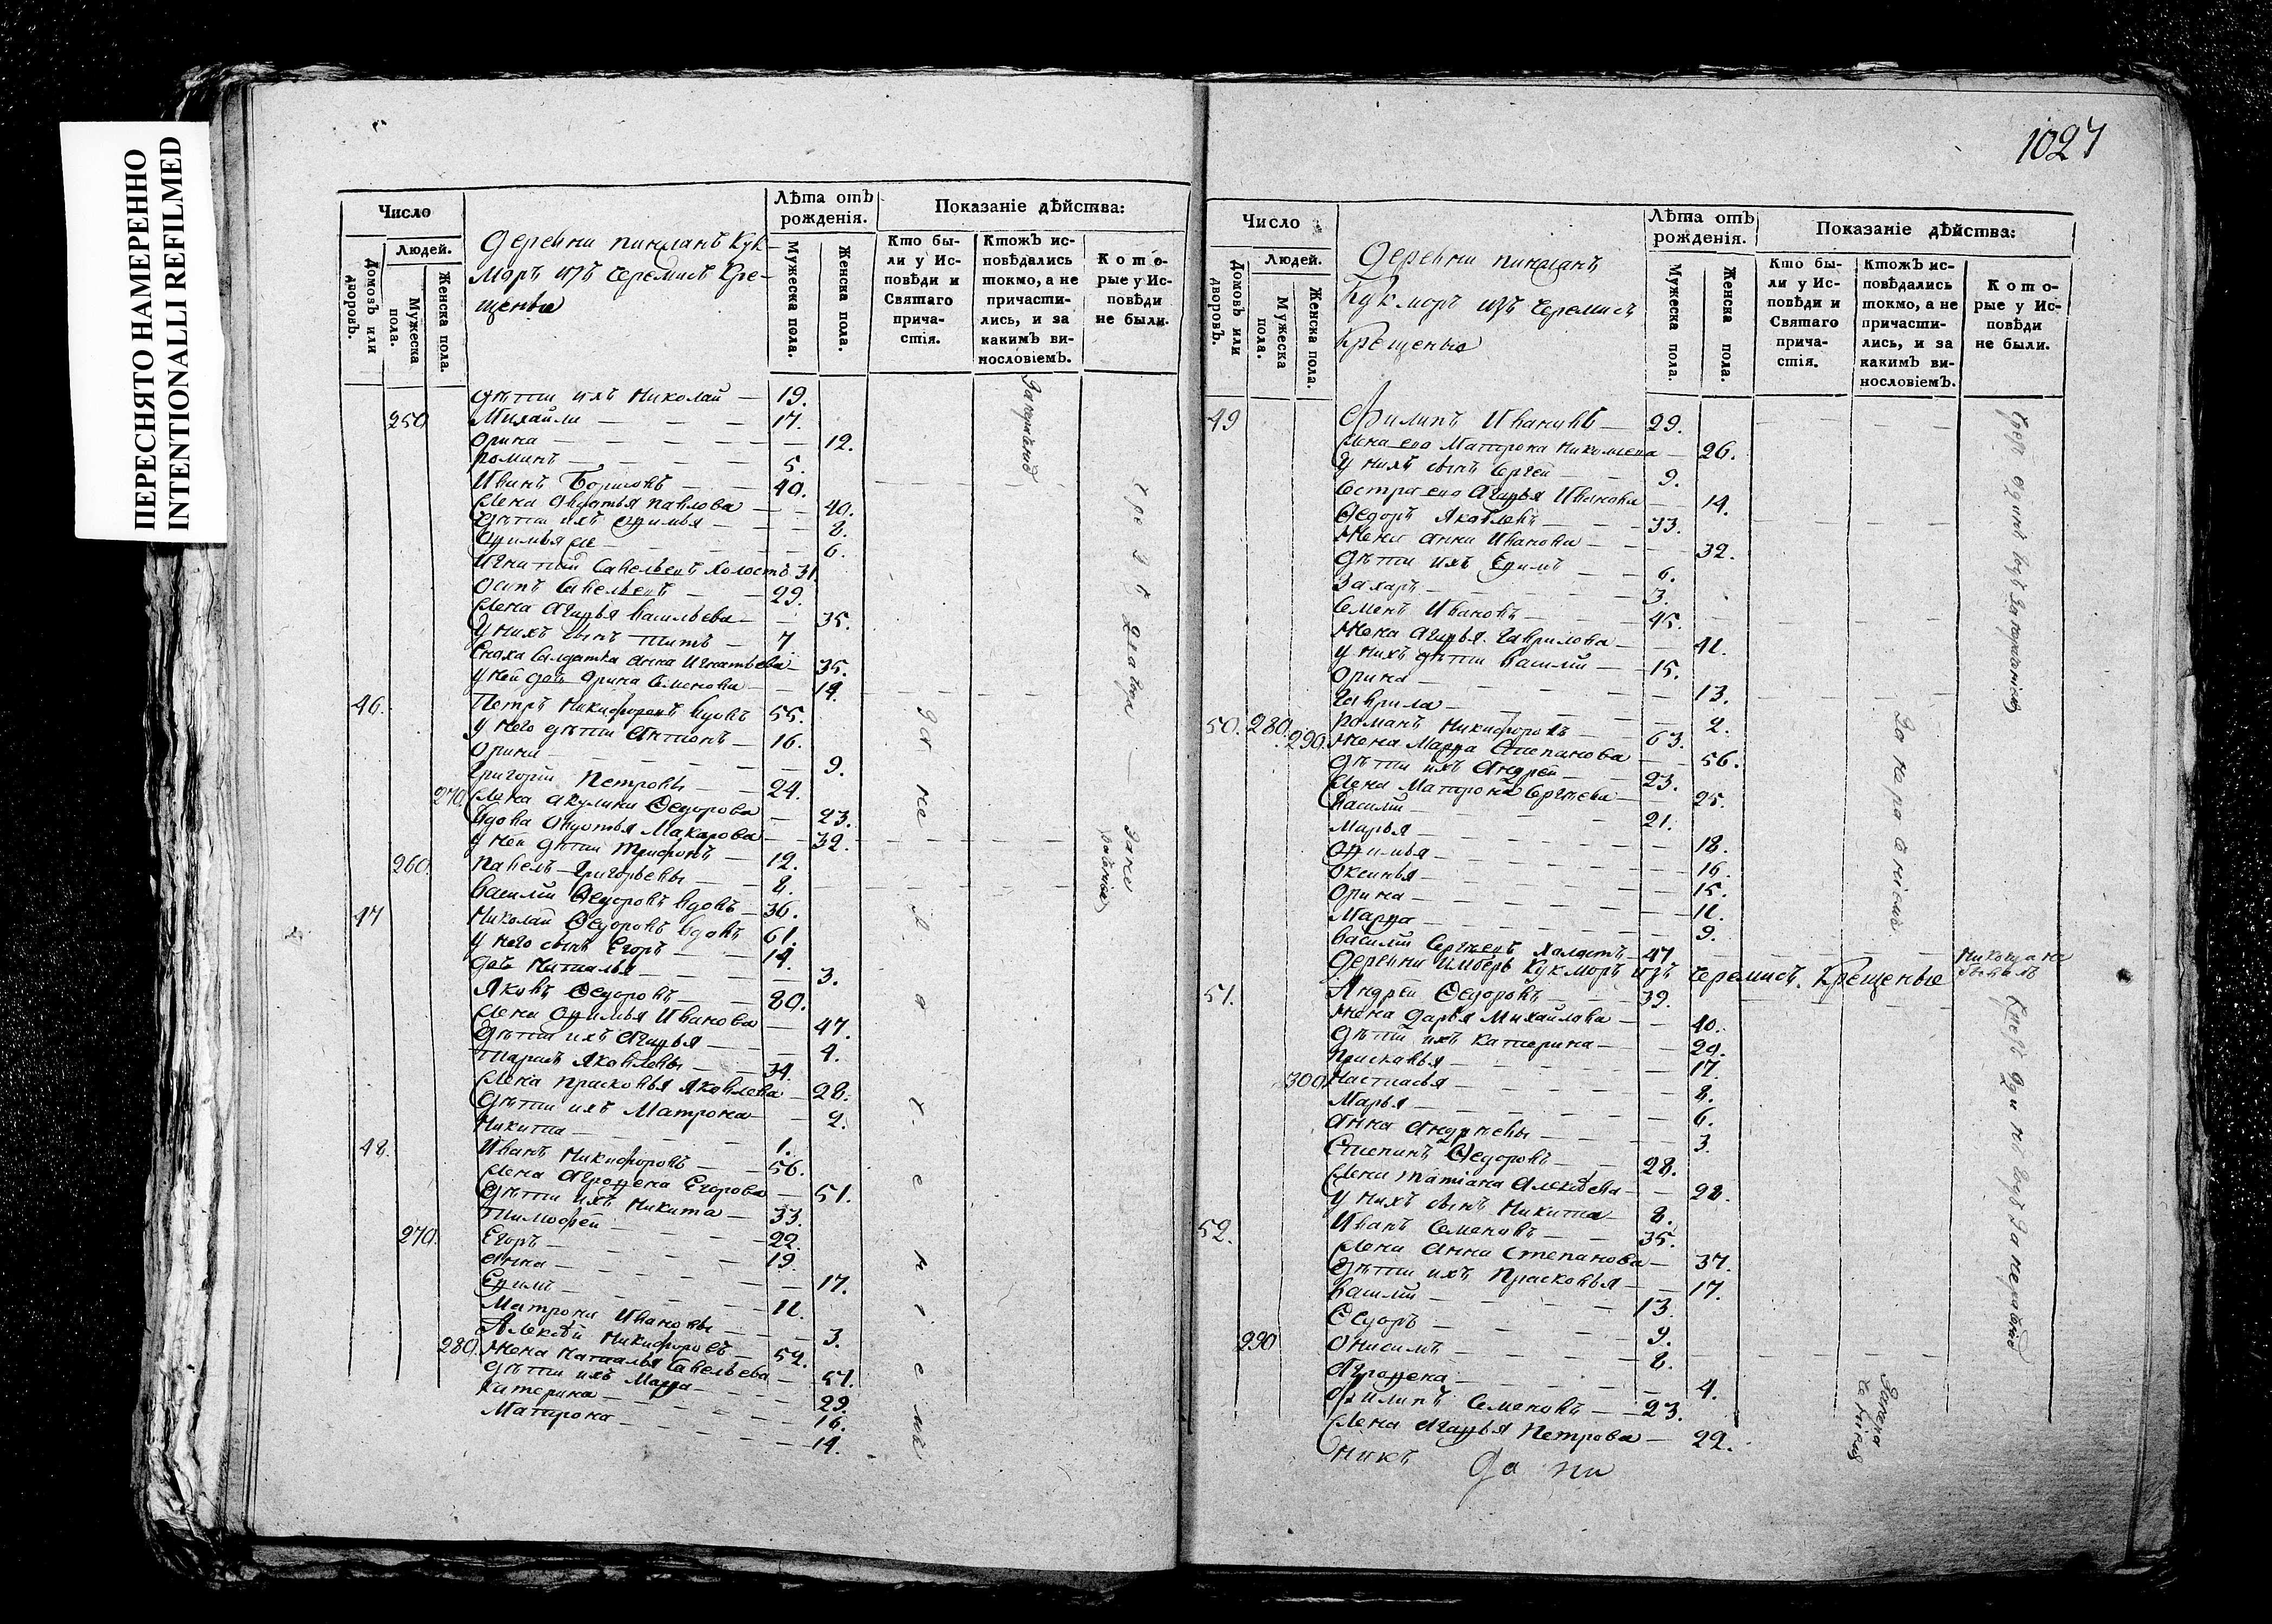 ПЕРЕСНЯТО НАМЕРЕННО
INTENTIONALLI REFILMED
Число
Людей.
Домовъ или дворовъ.
Мужеска пола.
Женска пола.
деревни Кук-
моръ изъ черемисъ Кре-
щены
Лѣта отъ рожденія.
Мужеска пола.
Женска пола.
Показаніе дѣйства:
Кто бы-
ли у Ис-
повѣди и
Святаго
прича-
стія.
Ктожъ ис-
повѣдались
токмо, а не
причасти-
лись, и за
какимъ ви-
нословіемъ.
Кото-
рые у Ис-
повѣди
не были.
дѣти ихъ Николай 19.
250 Михайла 17.
Орина 12.
Романъ 5.
Иванъ Борисовъ 40.
Жена Авдотья Павлова 40.
дѣти ихъ Офимья 8.
Офимья же 6.
Игнатий Савельевъ холостъ 31.
Осипъ Савельевъ 29.
Жена Агафья Васильева 35.
у нихъ сынъ Титъ 7.
Сноха Салдатка Анна Игнатьева 35.
у ней дочь Орина Семенова 14.
46. Петръ Никифоровъ вдовъ 55.
у него дѣти Антонъ 16.
Орина 9.
Григорий Петровъ 24.
270. Жена Акулина Федорова 23.
Вдова Авдотья Макарова 32.
у ней дѣти Трифонъ 12.
260. Павелъ Григорьевы 8.
Василий Федоровъ вдовъ 36.
47 Николай Федоровъ вдовъ 61.
у него сынъ Егоръ 14.
дочь Наталья 3.
Яковъ Федоровъ 80.
Жена Офимья Иванова 47.
дѣти ихъ Агафья 4.
Тарасъ Яковлевы 34.
Жена Прасковья Яковлева 28.
дѣти ихъ Матрона 2.
Никита 1.
48. Иванъ Никифоровъ 56.
Жена Агрофена Егорова 51.
дѣти ихъ Никита 33.
Тимофей 22.
270. Егоръ 19.
Анна 17.
Ефимъ 11.
Матрона Ивановы 3.
Алексѣй Никифоровъ 52.
280. Жена Наталья Савельева 51.
дѣти ихъ Марфа 29.
Катерина 16.
Матрона 14.
1027
Число
Людей.
Домовъ или дворовъ.
Мужеска пола.
Женска пола.
деревни
Кукморъ изъ черемисъ
Крещены
Лѣта отъ рожденія.
Мужеска пола.
Женска пола.
Показаніе дѣйства:
Кто бы-
ли у Ис-
повѣди и
Святаго
прича-
стія.
Ктожъ ис-
повѣдались
токмо, а не
причасти-
лись, и за
какимъ ви-
нословіемъ.
Кото-
рые у Ис-
повѣди
не были.
49 Филипъ Ивановъ 29.
Жена его Матрона Николаева 26.
у нихъ сынъ Сергей 9.
Сестра его Агафья Иванова 14.
Федоръ Яковлевъ 33.
Жена Анна Иванова 32.
дѣти ихъ Ефимъ 6.
Захаръ 3.
Семенъ Ивановъ 45.
Жена Агафья Гаврилова 41.
у нихъ дѣти Василий 15.
Орина 13.
Гаврила 2.
50. 280. Романъ Никифоровъ 63.
290. Жена Марфа Степанова 56.
дѣти ихъ Андрей 23.
Жена Матрона Сергеева 25.
Василий 21.
Марья 18.
Офимья 16.
Оксинья 15.
Орина 11.
Марфа 9.
Василий Сергеевъ холостъ 47.
деревни Имберь Кукморъ изъ черемисъ Крещеные
51. Андрей Федоровъ 39.
Жена Дарья Михайлова 40.
дѣти ихъ Катерина 20.
Прасковья 17.
300. Настасья 8.
Марья 6.
Анна Андреевы 3.
Степанъ Федоровъ 28.
Жена Татіана Алексѣева 28.
у нихъ сынъ Никита 8.
52. Иванъ Семеновъ 35.
Жена Анна Степанова 37.
дѣти ихъ Прасковья 17.
Василий 13.
Федоръ 9.
290 Онисимъ 8.
Агрофена 4.
Филипъ Семеновъ 23.
Жена Агафья Петрова 22.